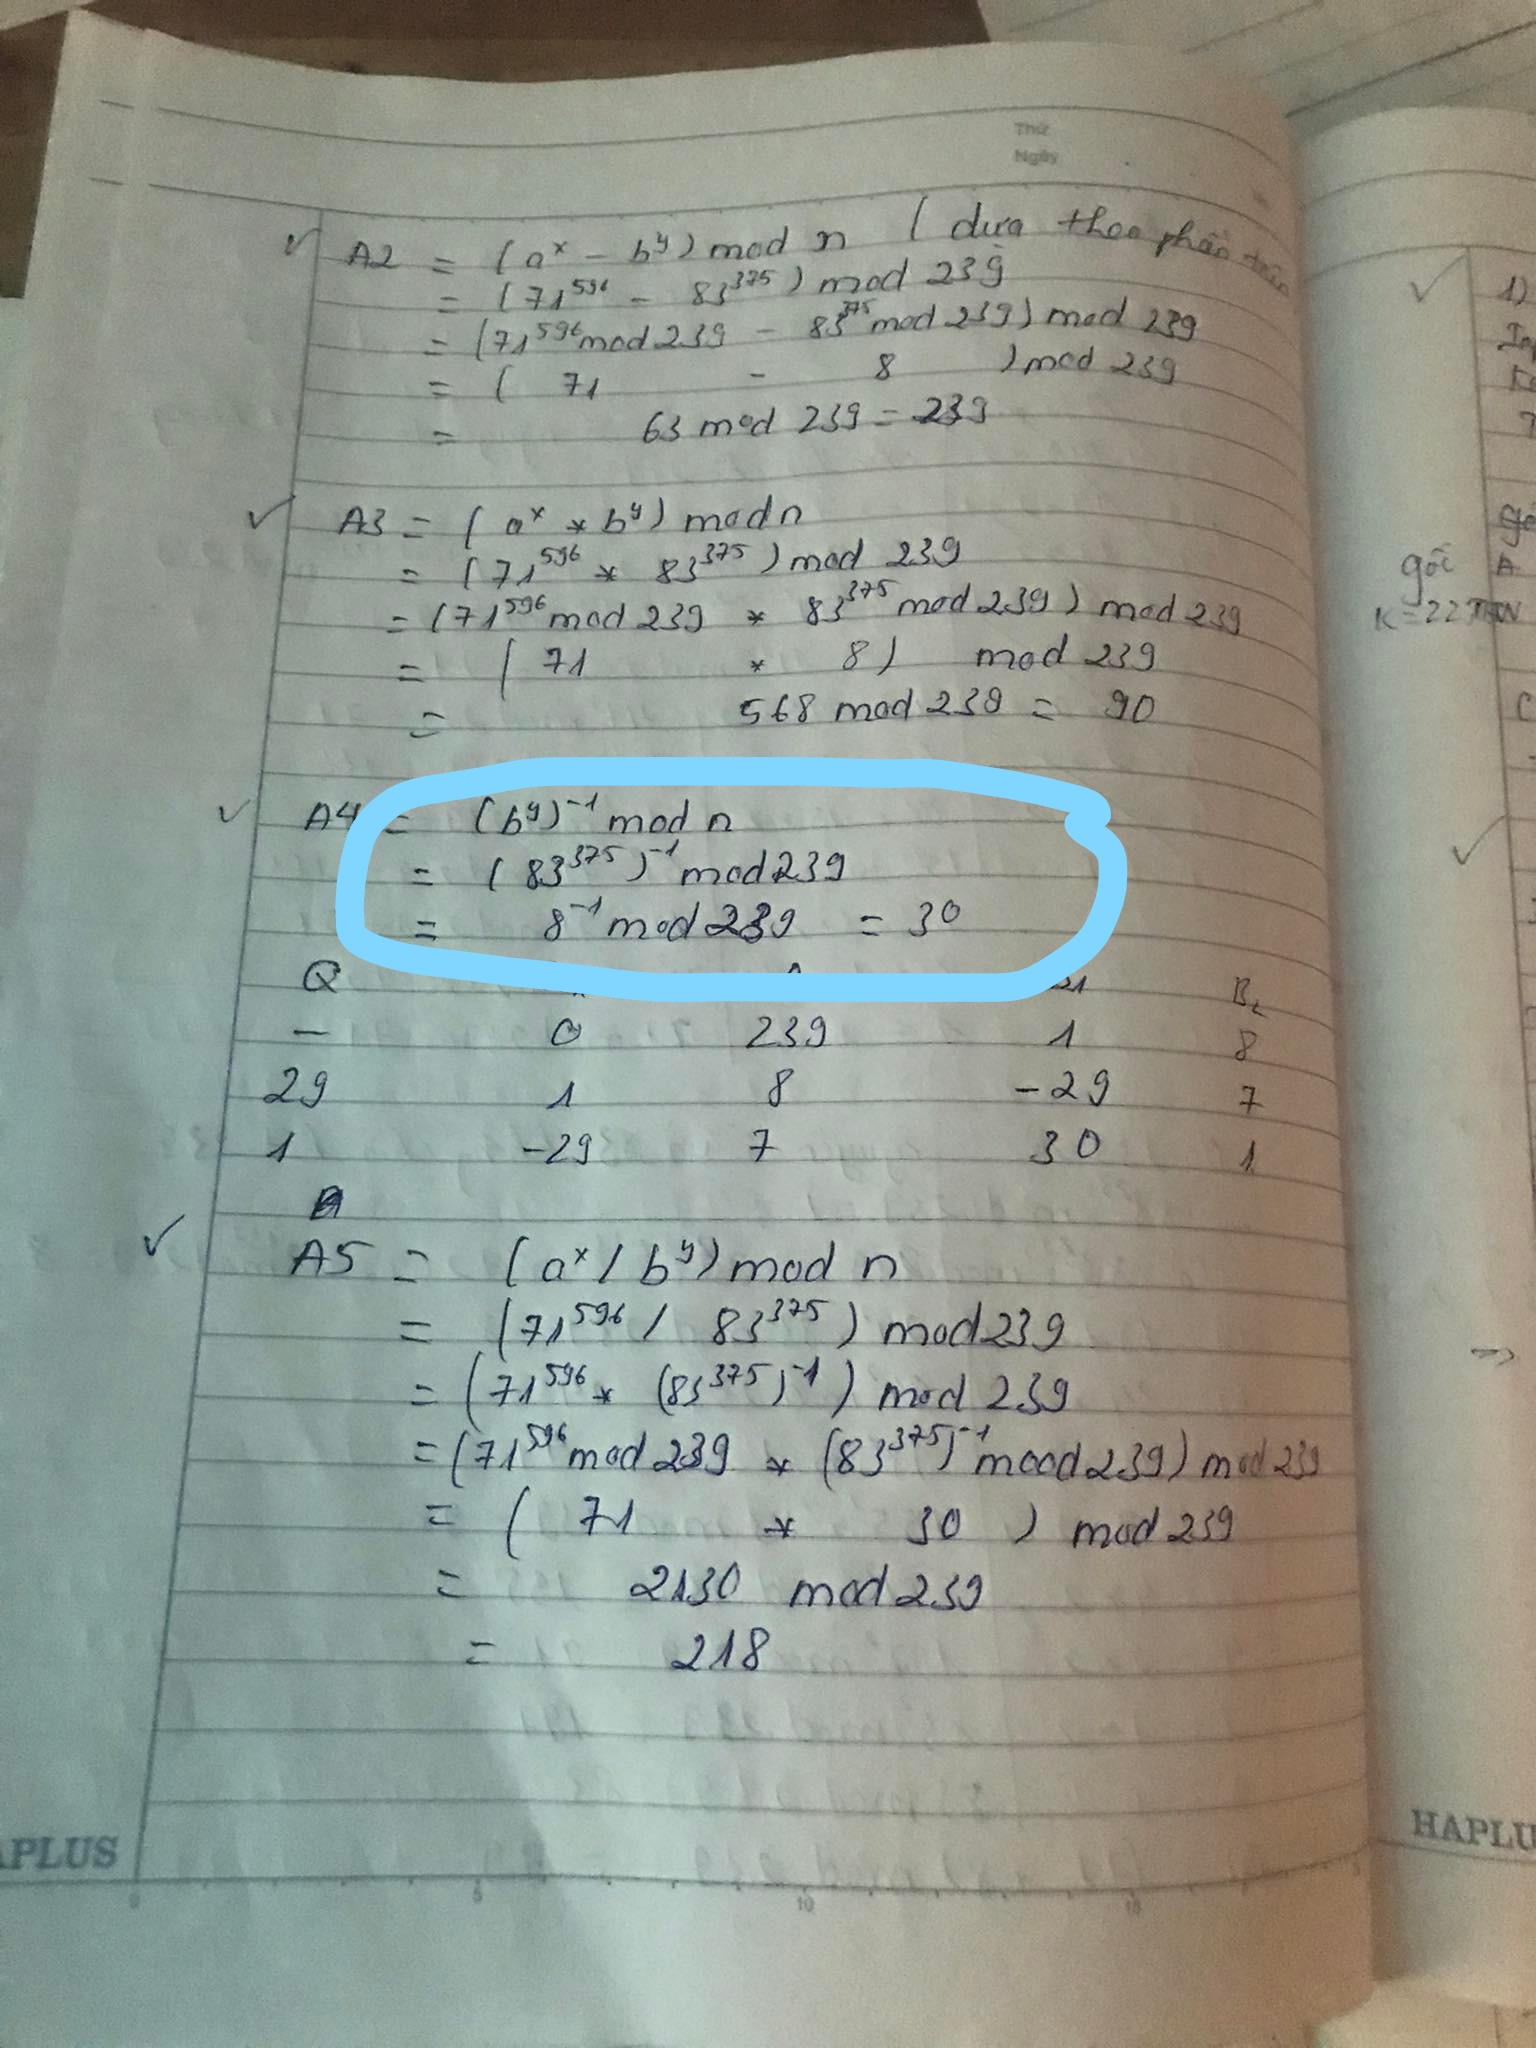 Thứ
Ngày
A2 = (a^x - b^y) mod n ( dựa theo phần trên
= (71^596 - 83^375) mod 239
= (71^596 mod 239 - 83^375 mod 239) mod 239
= ( 71 - 8 ) mod 239
= 63 mod 239 = 239
A3 = ( a^x * b^y) mod n
= (71^596 * 83^375) mod 239
= (71^596 mod 239 * 83^375 mod 239) mod 239
= ( 71 * 8) mod 239
= 568 mod 239 = 90
A4 = (b^y)^-1 mod n
= ( 83^375 )^-1 mod 239
= 8^-1 mod 239 = 30
Q B1 B2
- 0 239 1 8
29 1 8 -29 7
1 -29 7 30 1
A5 = (a^x / b^y) mod n
= (71^596 / 83^375) mod 239
= (71^596 * (83^375)^-1) mod 239
= (71^596 mod 239 * (83^375)^-1 mood 239) mod 239
= ( 71 * 30 ) mod 239
= 2130 mod 239
= 218
APLUS
0 5 10 15
1)
gốc A
K=22
C
=>
HAPLU